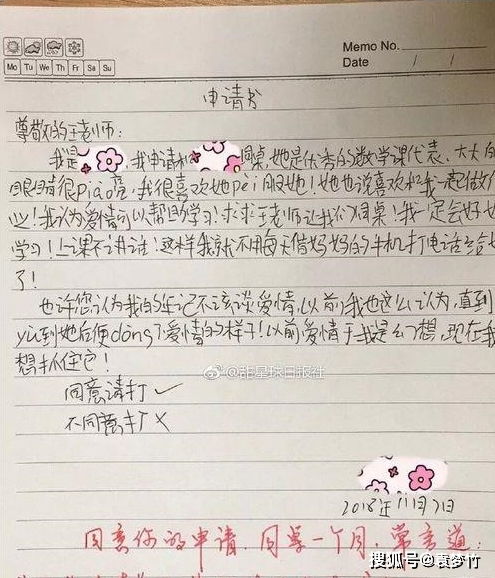 Memo No.
Mo Tu We Th Fr Sa Su
Date / /
申请书
尊敬的王老师：
我是 我申请和 同桌,她是优秀的数学课代表、大大的
眼睛很piào亮,我很喜欢她pèi服她!她也说喜欢和我一起做作
业!我认为爱情可以帮助学习!求求王老师让我们同桌!我一定会好好
学习!上课不讲话!这样我就不用每天借妈妈的手机打电话给她
了!
也许您认为我的年记不该谈爱情,以前我也这么认为,直到
yù到她后便dǒng了爱情的样子!以前爱情于我是幻想,现在我
想抓住它!
同意请打✓
不同意打×
@甜星球日报社
2018年11月7日
同意你的申请,同桌一个月,常言道:
搜狐号@襄梦竹